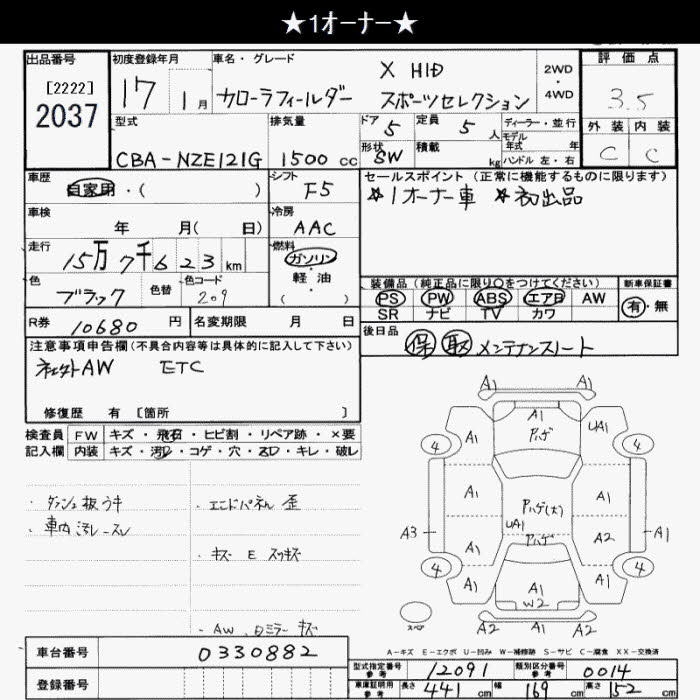 ★1オーナー★
出品番号 初度登録年月 車名・グレード 評価点
[2222] 2037 17 1月 カローラフィールダー X HID スポーツセレクション 2WD 4WD 3.5
型式 排気量 ドア 5 定員 5人 ディーラー・並行 外装 内装
モデル年式 年
CBA-NZE121G 1500cc 形状 SW 積載 kg ハンドル 左・右 C C
車歴 自家用・( ) シフト F5 セールスポイント (正常に機能するものに限ります)
★1オーナー車 ★初出品
車検 年 月( 日) 冷房 AAC
走行 15万7千623km 燃料 ガソリン 軽・油 ( )
色 ブラック 色替 色コード 209
装備品 (純正品に限り○をつけてください) 新車保証書
PS PW ABS エアB AW 有・無
SR ナビ TV カワ
R券 10680円 名変期限 月 日
後日品 保 取 メンテナンスノート
注意事項申告欄(不具合内容等は具体的に記入して下さい)
社外AW ETC
修復歴 有 [箇所 ]
検査員 FW キズ・飛石・ヒビ割・リペア跡・×要
記入欄 内装 キズ・汚れ・コゲ・穴・スレ・キレ・破レ
・ダッシュ板ウキ ・エンドパネル 歪
・車内汚レ-スレ
・キズ E スリキズ
・AW、Dミラー キズ
A1 A1
A1 A1 UA1
4 アハゲ 4
A1 A1
アハゲ(大)
UA1
A3 アハゲ A2 A1
4 4
A1 A1 A1
W2
スペア A2 A1 A2
A-キズ E-エクボ U-凹み W-補修跡 S-サビ C-腐食 XX-交換済
車台番号 0330882
型式指定番号 参考 12091 類別区分番号 参考 0014
登録番号
車庫証明用 参考 長さ 441cm 幅 169cm 高さ 152cm